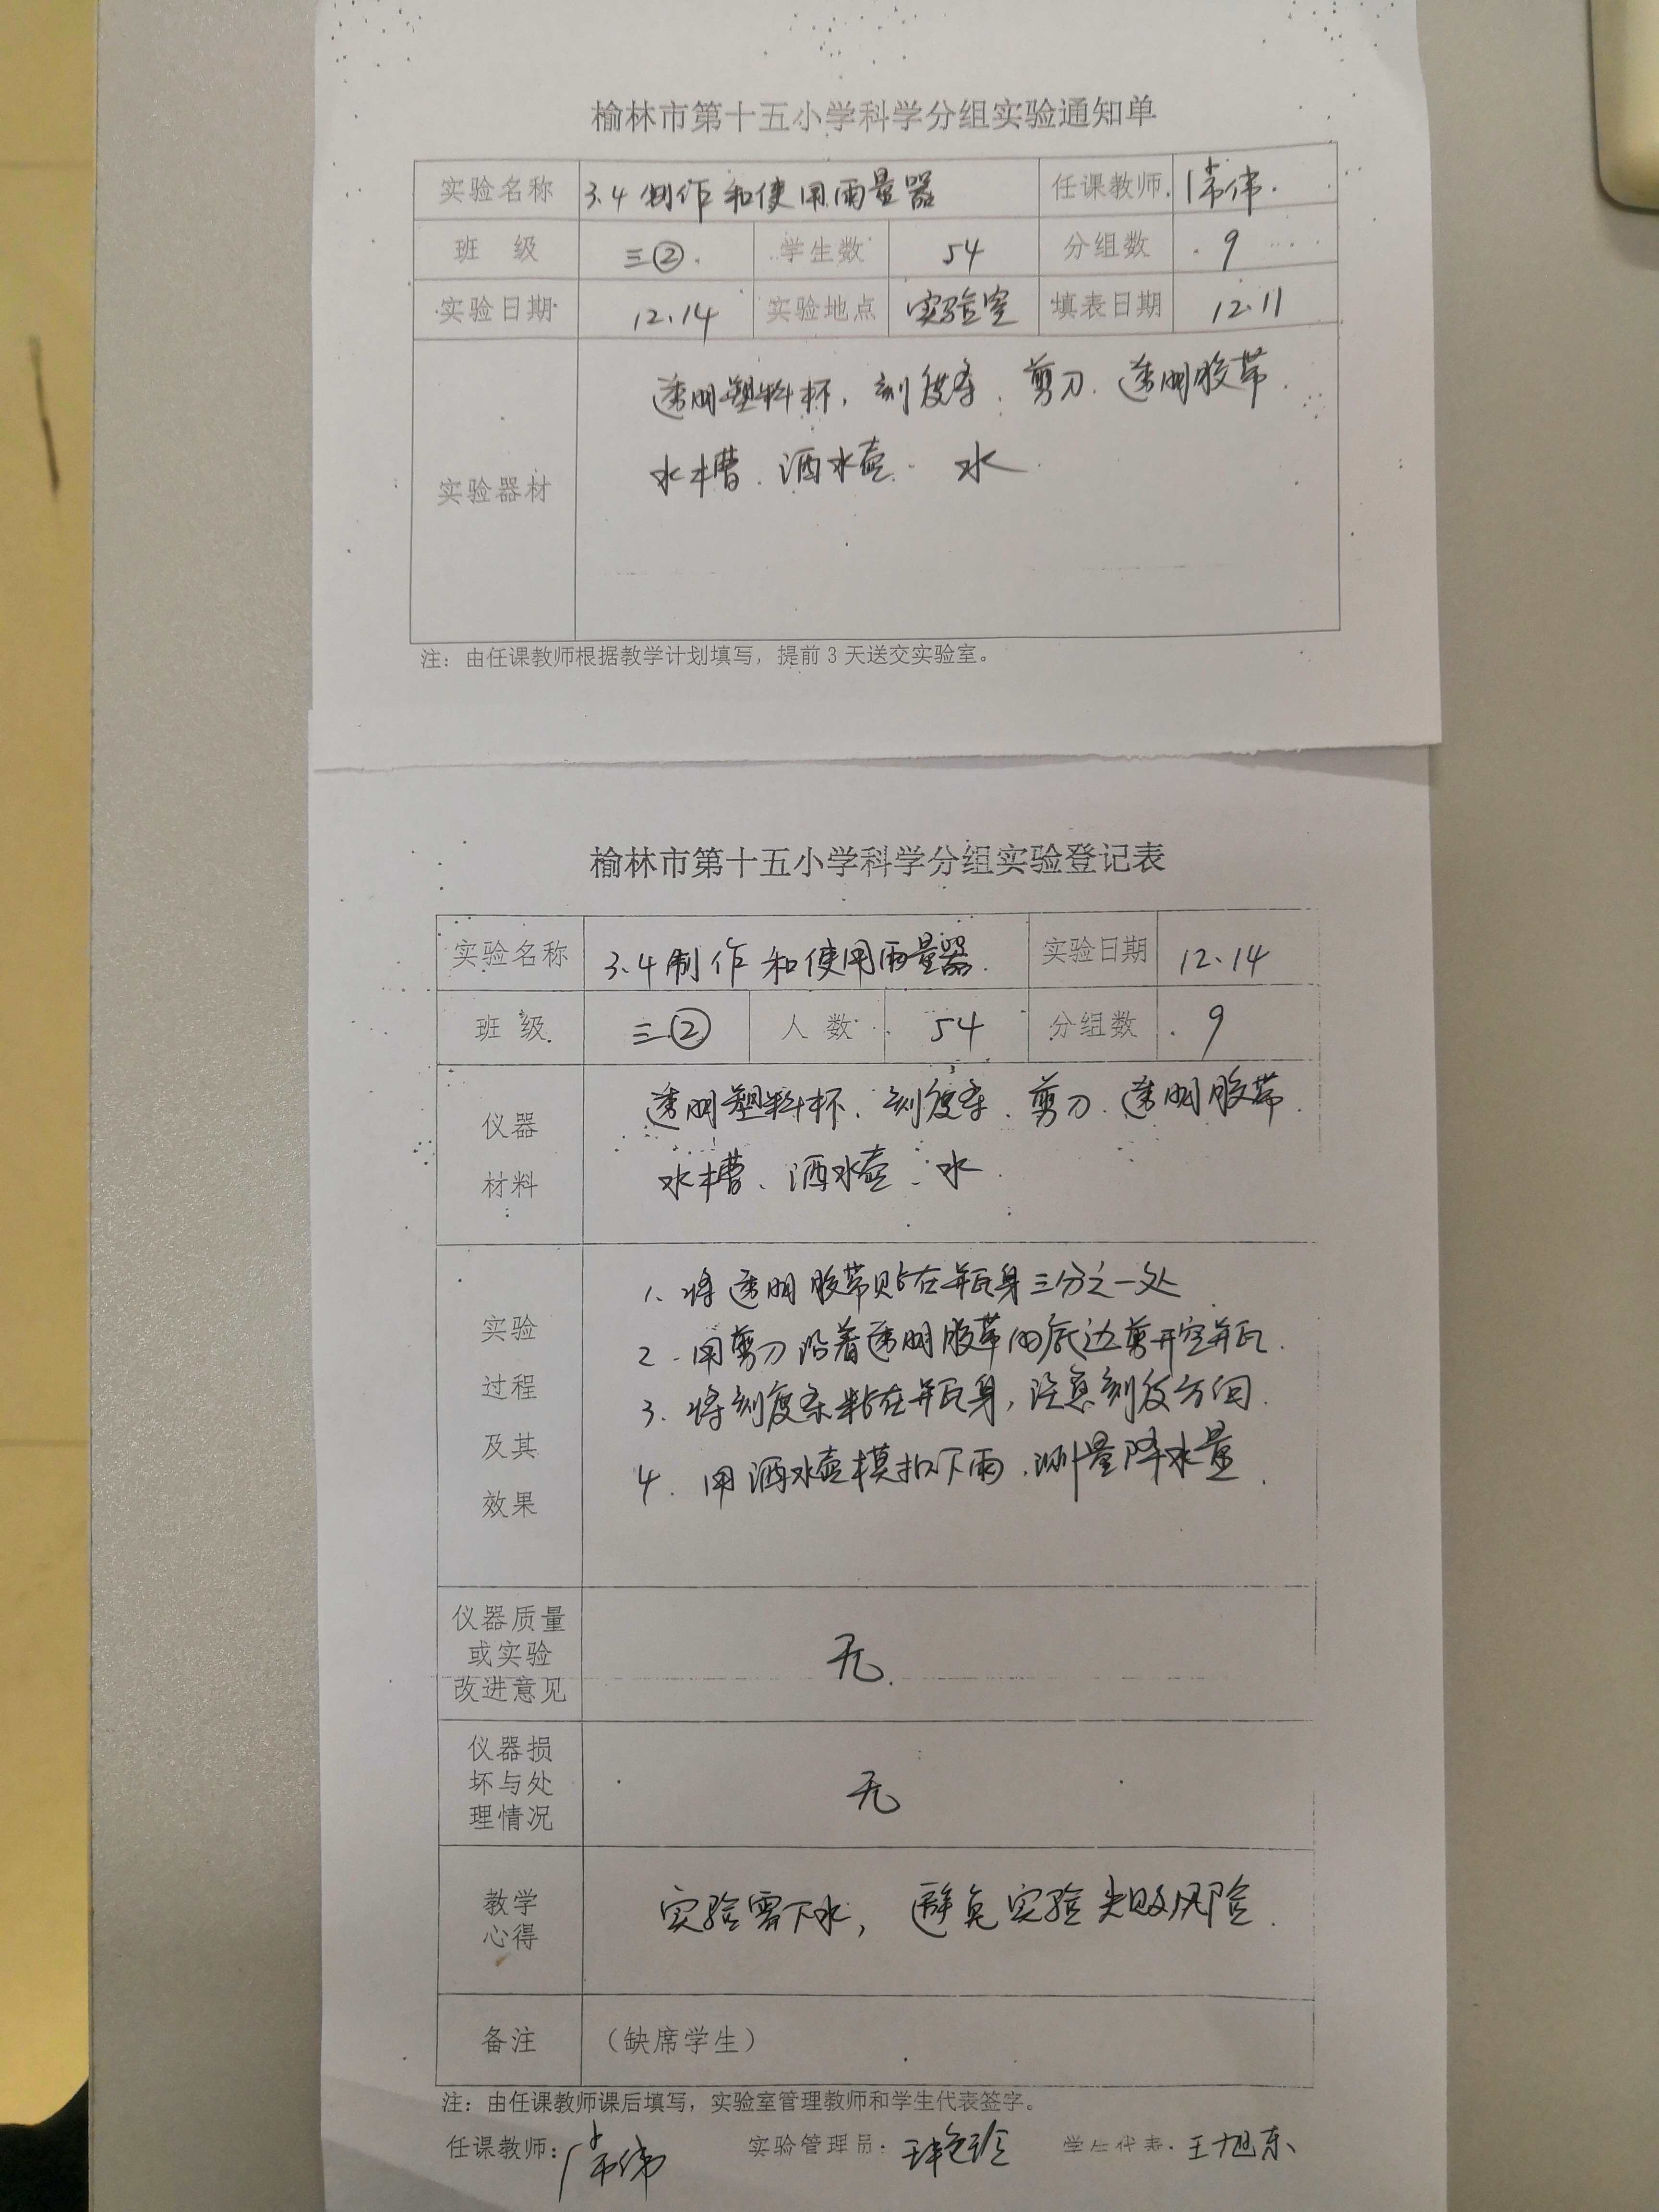 榆林市第十五小学科学分组实验通知单
实验名称 3.4 制作和使用雨量器 任课教师
班 级 三② 学生数 54 分组数 9
实验日期 12.14 实验地点 实验室 填表日期 12.11
实验器材
透明塑料杯、刻度条、剪刀、透明胶带
水槽、洒水壶、水
注：由任课教师根据教学计划填写，提前 3 天送交实验室。
榆林市第十五小学科学分组实验登记表
实验名称 3.4 制作和使用雨量器 实验日期 12.14
班 级 三② 人 数 54 分组数 9
仪器
材料
透明塑料杯、刻度条、剪刀、透明胶带
水槽、洒水壶、水
实验
过程
及其
效果
1、将透明胶带贴在瓶身三分之一处
2、用剪刀沿着透明胶带的底边剪开空瓶.
3、将刻度条粘在瓶身，注意刻度方向.
4、用洒水壶模拟下雨，测量降水量.
仪器质量
或实验
改进意见
无.
仪器损
坏与处
理情况
无
教学
心得
实验需下水，避免实验失败风险.
备注 （缺席学生）
注：由任课教师课后填写，实验室管理教师和学生代表签字。
任课教师： 实验管理员： 学生代表：王旭东